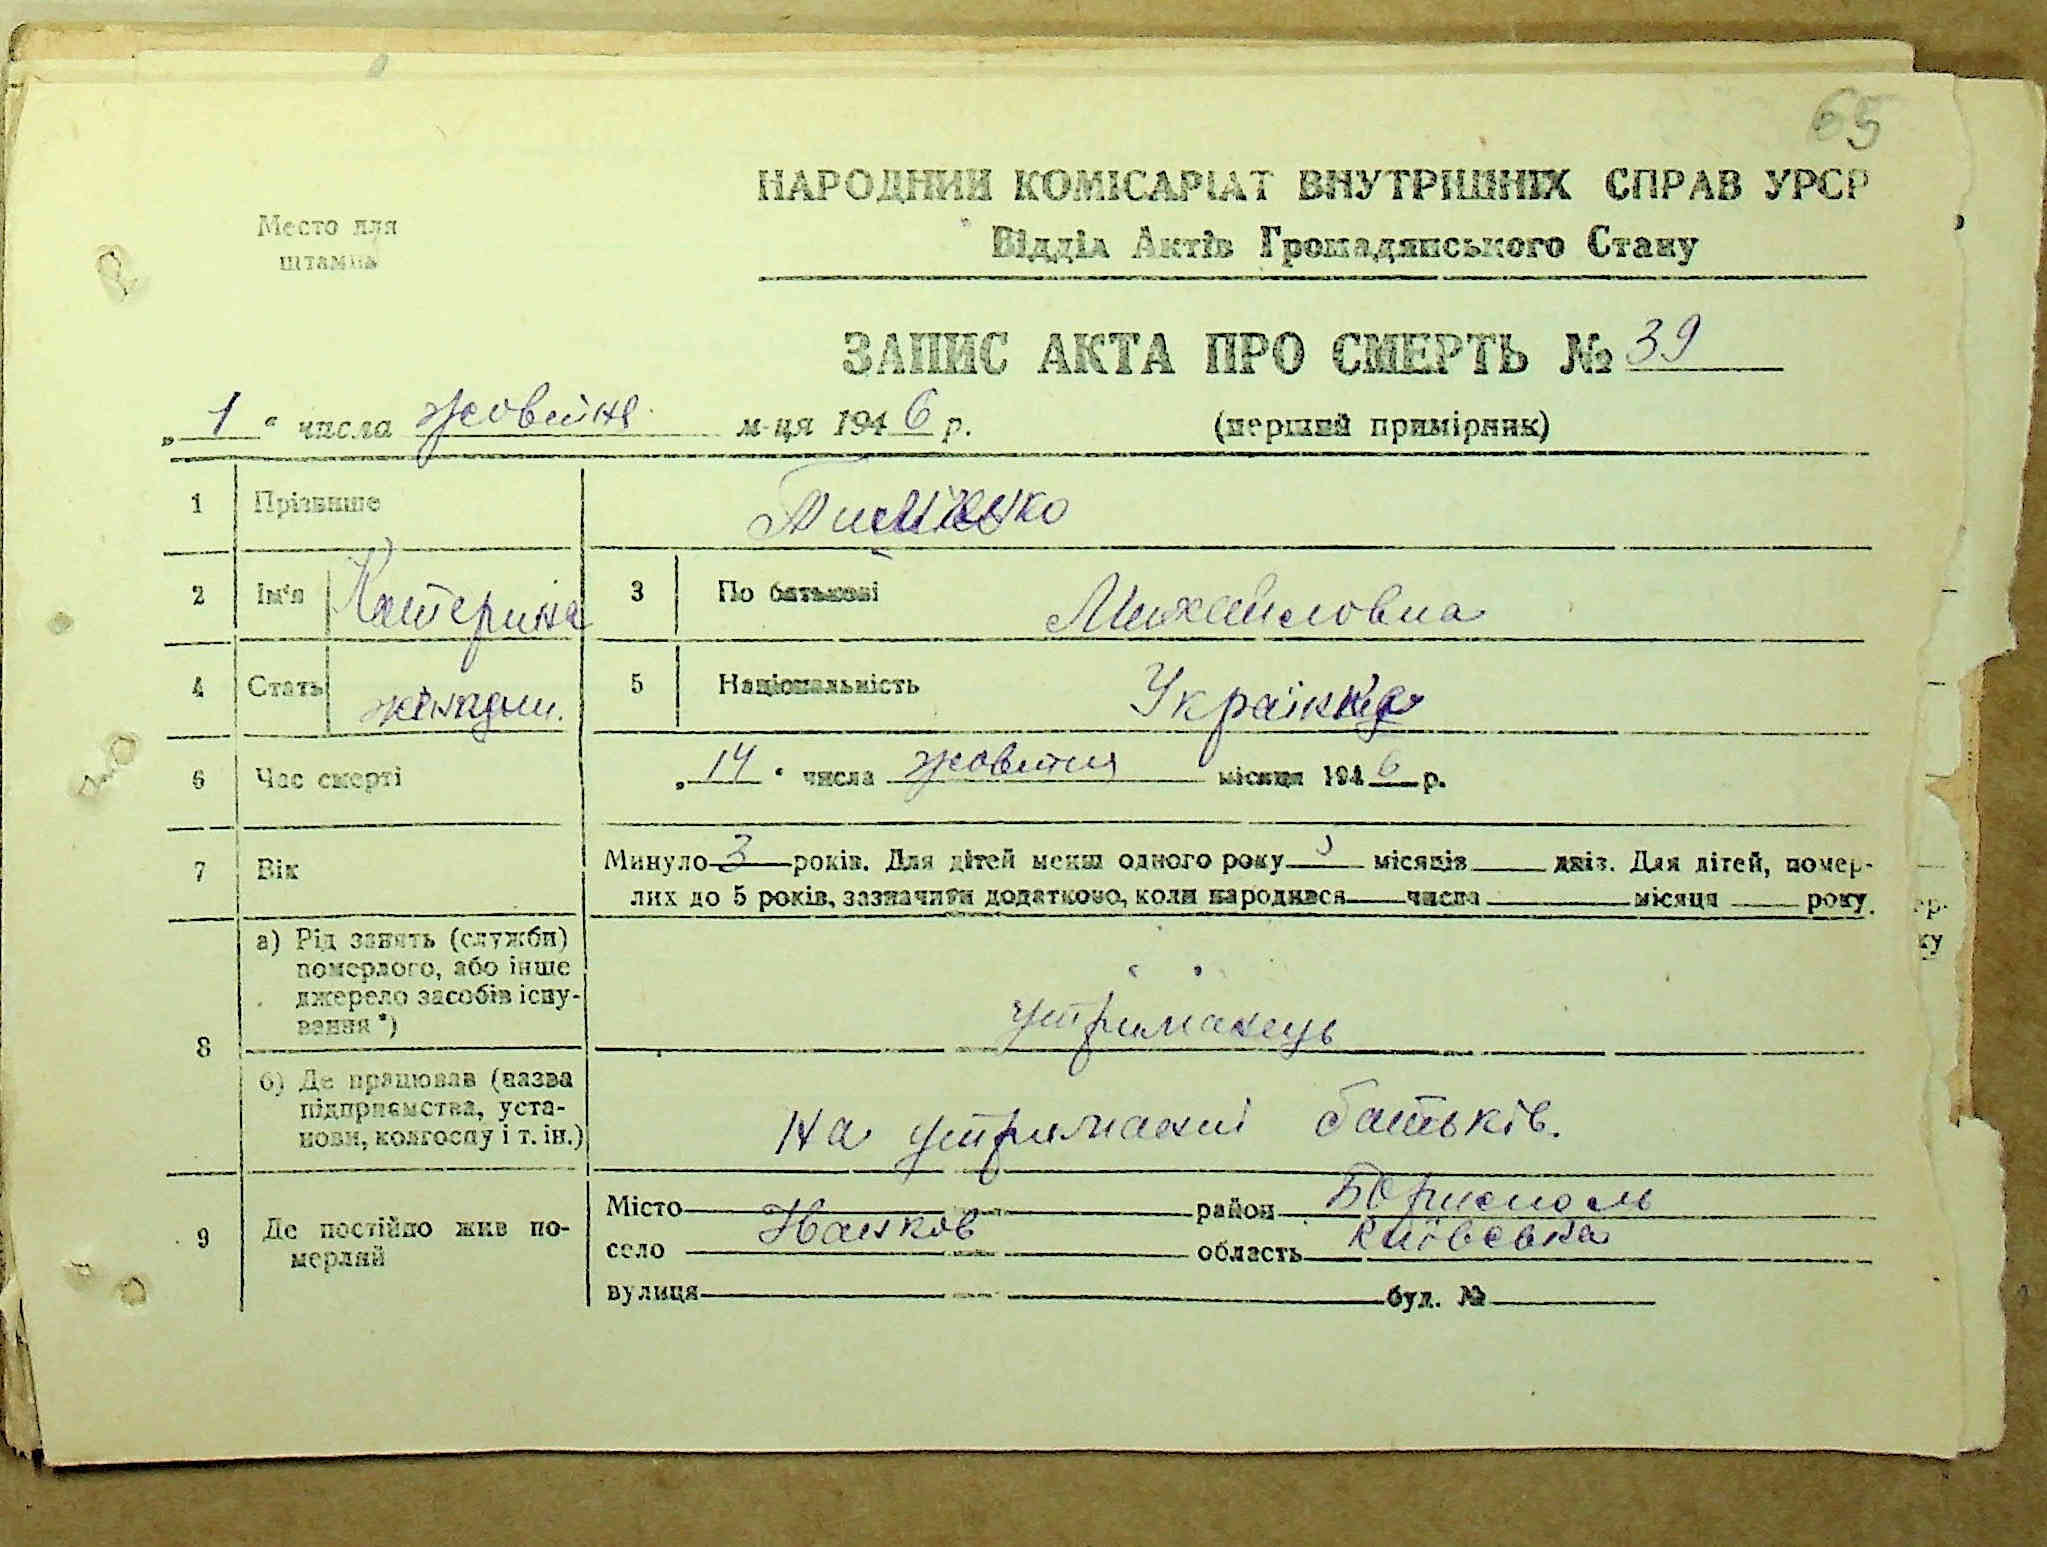 65
НАРОДНИЙ КОМІСАРІАТ ВНУТРІШНІХ СПРАВ УРСР
Место для
штампа
Відділ Актів Громадянського Стану
ЗАПИС АКТА ПРО СМЕРТЬ № 39
„ 1 " числа жовтня м-ця 1946 р. (перший примірник)
1 Прізвище
2 Ім'я Катерина 3 По батькові Михайловна
4 Стать 5 Національність Українка
6 Час смерті „ 14 " числа жовтня місяця 1946 р.
7 Вік Минуло 3 років. Для дітей менш одного року місяців днів. Для дітей, помер-
лих до 5 років, зазначити додатково, коли народився числа місяця року.
8 а) Рід занять (служби)
померлого, або інше
джерело засобів існу-
вання *) утріманець
б) Де працював (назва
підприємства, уста-
нови, колгоспу і т. ін.) на утримані батьків.
9 Де постійно жив по-
мерлий
Місто район Бориспол​ь
село Іванков область Київська
вулиця буд. №